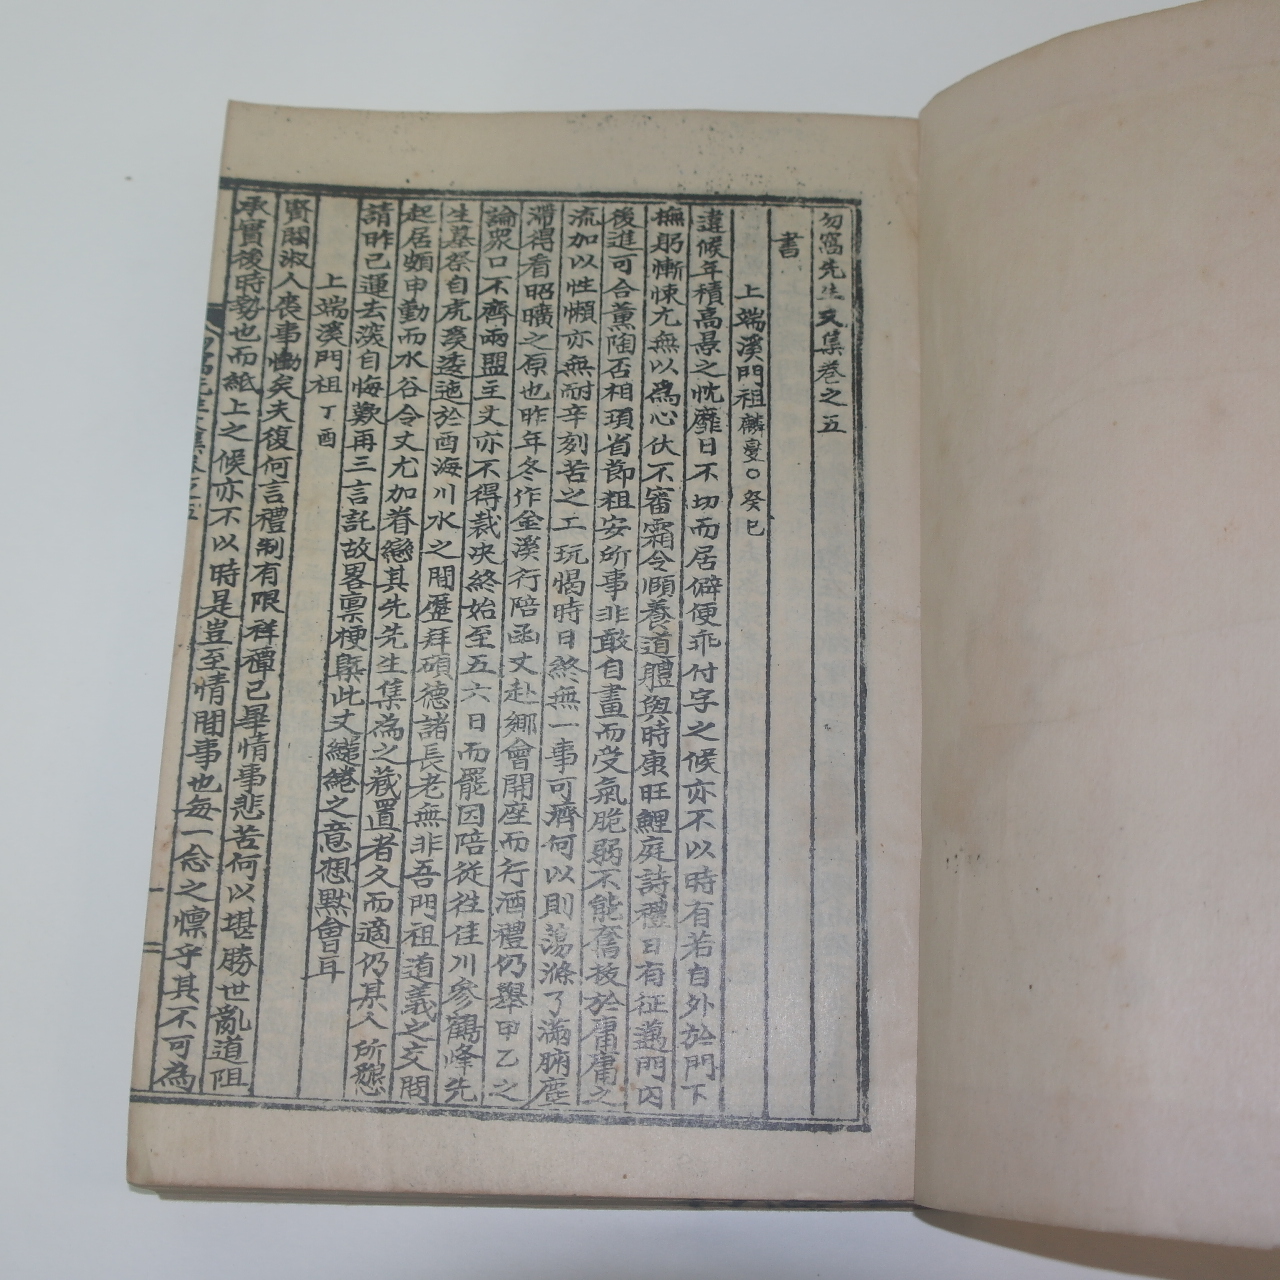 勿窩先生文集卷之五
書
上端溪門祖麟燮○癸巳
違候年積高景之忱靡日不切而居僻便乖付字之候亦不以時有若自外於門下
撫躬慚悚尤無以爲心伏不審霜令頤養道體與時康旺鯉庭詩禮日有征邁門內
後進可合薰陶否相項省節粗安所事非敢自畫而受氣脆弱不能奮拔於庸庸之
流加以性懶亦無耐辛刻苦之工玩愒時日煞無一事可濟何以則蕩滌了滿腑塵
滯得看昭曠之原也昨年冬作金溪行陪函丈赴鄉會開座而行酒禮仍擧甲乙之
論衆口不齊兩盟主丈亦不得裁决終始至五六日而罷因陪從往佳川參鶴峰先
生墓祭自虎溪逶迤於酉海川水之間歷拜碩德諸長老無非吾門祖道義之交問
起居頗申勤而水谷令丈尤加眷戀其先先生集為之藏置者久而適仍某人所懇
請昨已運去深自悔歎再三言託故畧禀梗槩此丈繾綣之意想默會耳
上端溪門祖丁酉
賢閤淑人喪事慟矣夫復何言禮制有限祥禫已畢情事悲苦何以堪勝世亂道阻
承實後時勢也而紙上之候亦不以時是豈至情間事也每一念之懍乎其不可為
勿窩先生文集卷之五
一